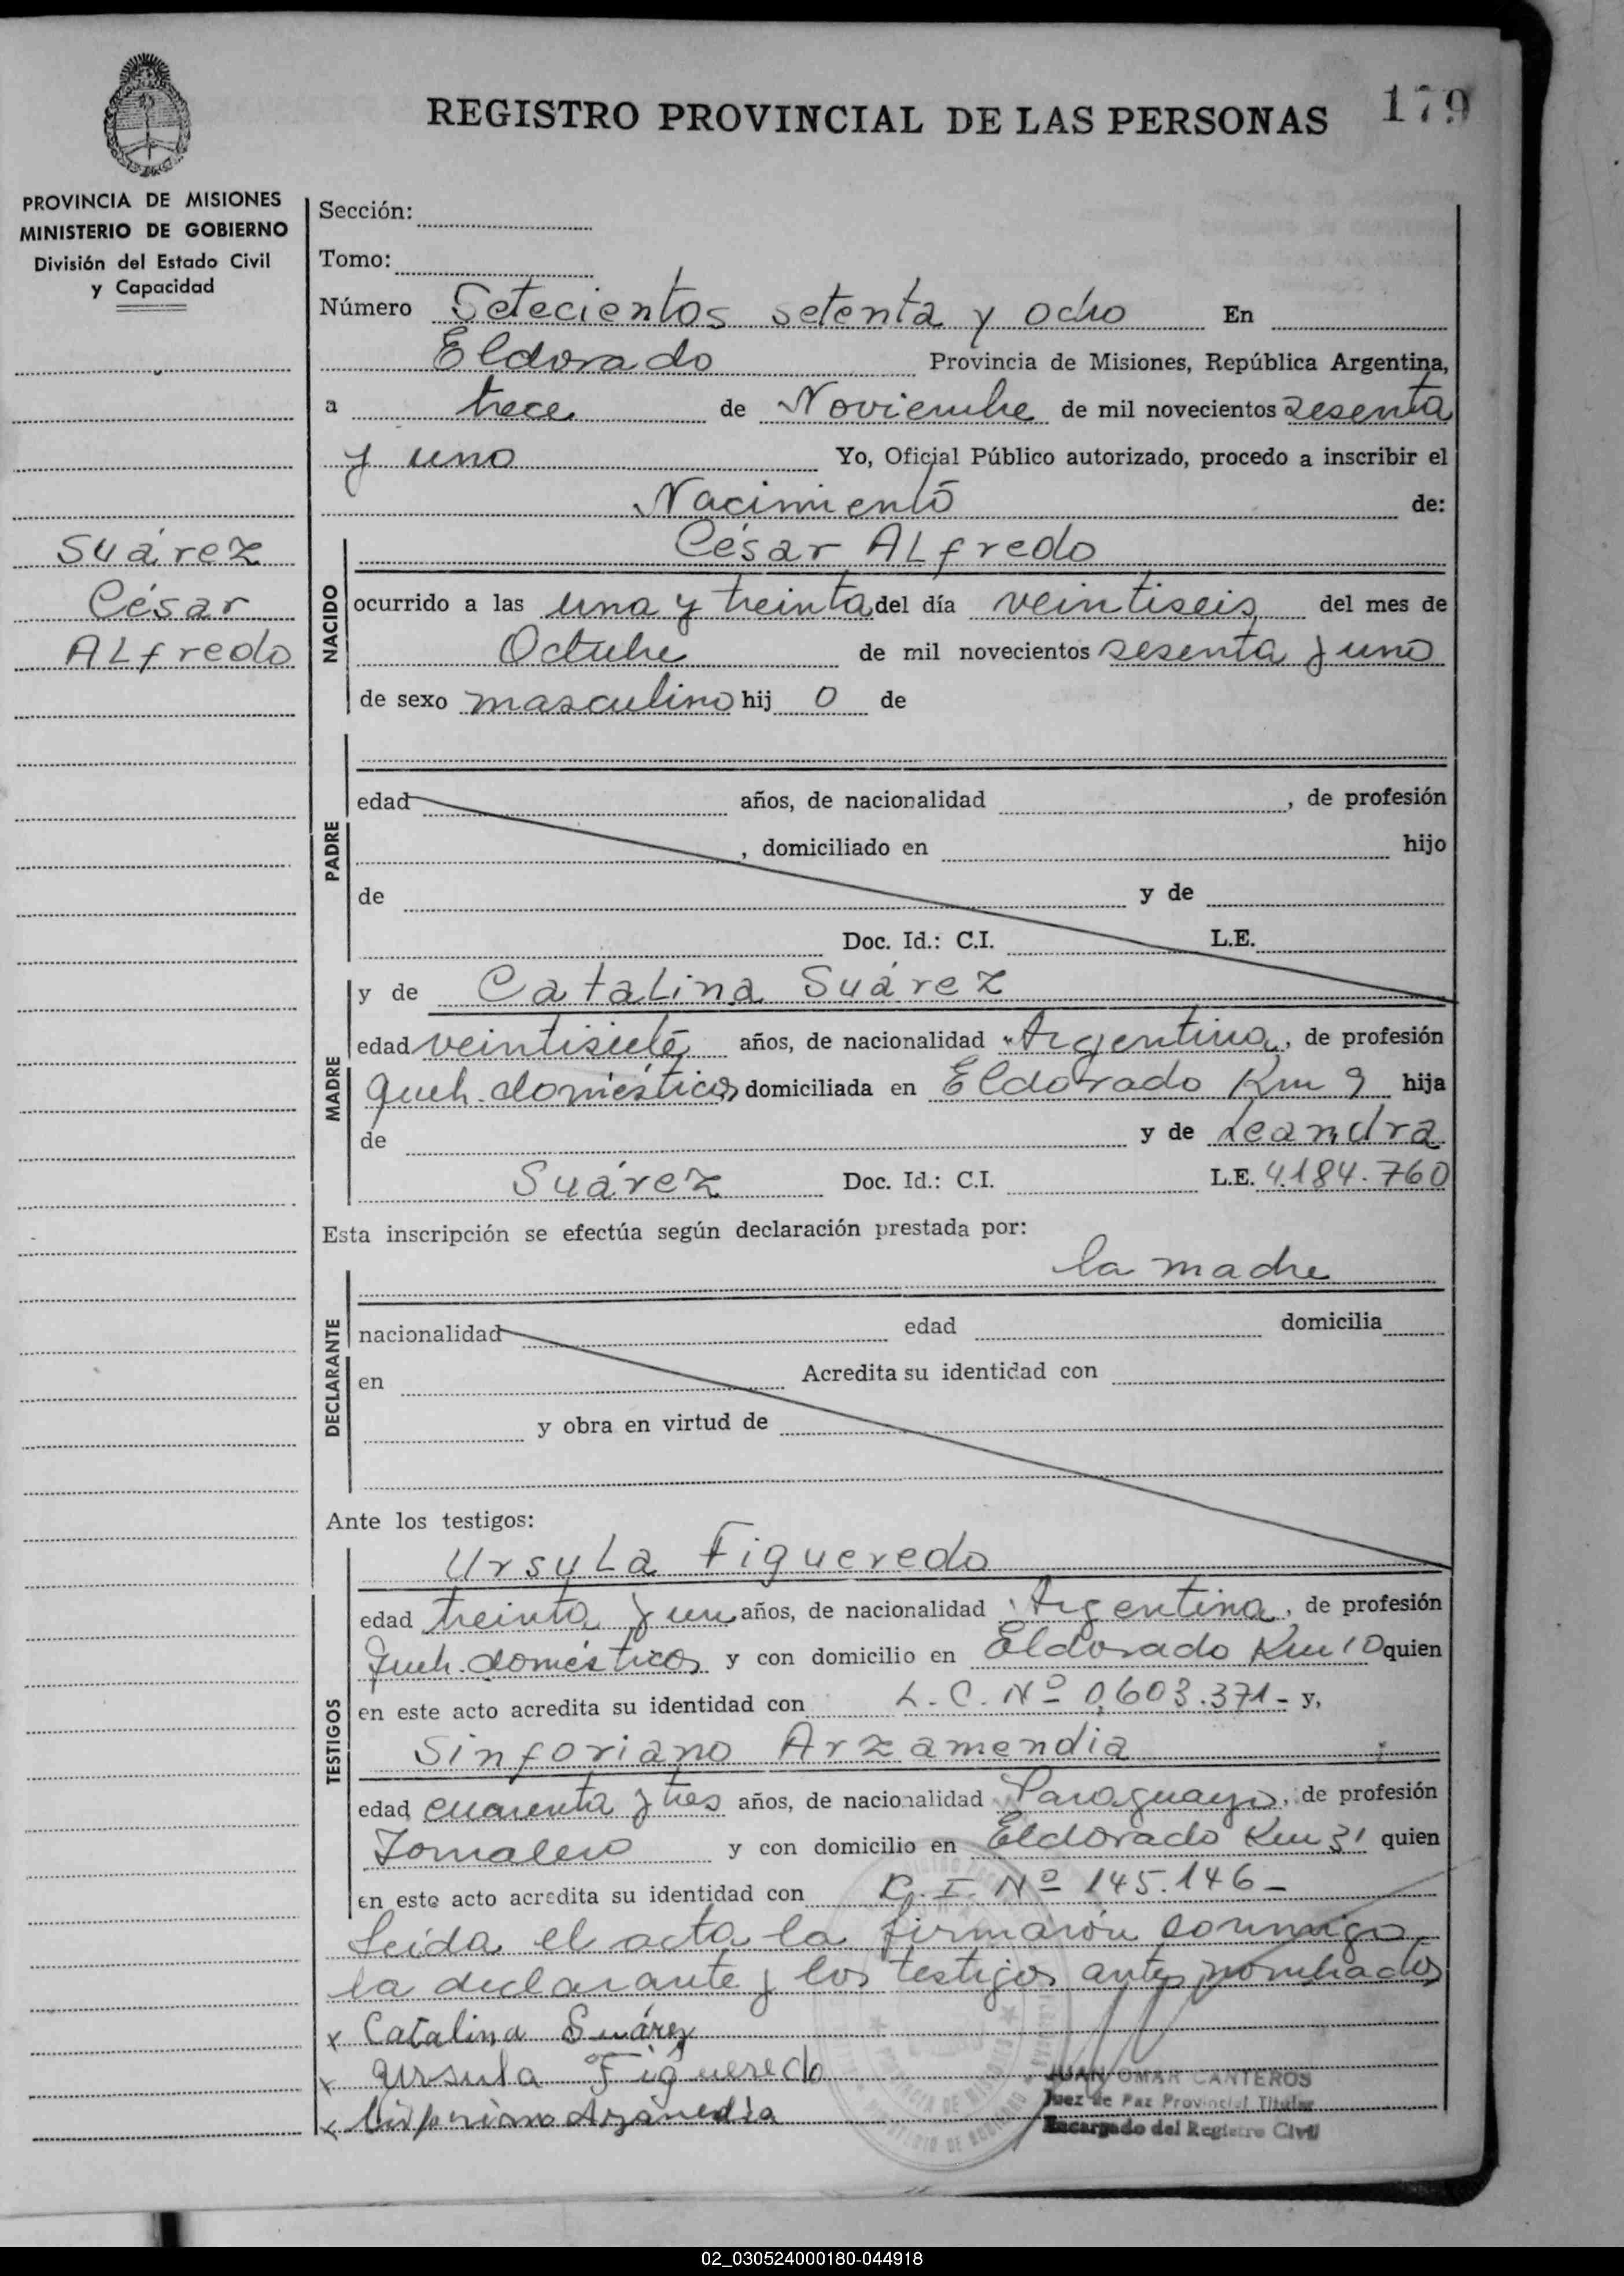 REGISTRO PROVINCIAL DE LAS PERSONAS 179
PROVINCIA DE MISIONES
MINISTERIO DE GOBIERNO
División del Estado Civil
y Capacidad
Suárez
César
ALfredo
Sección:
Tomo:
Número Setecientos setenta y ocho En
Eldorado Provincia de Misiones, República Argentina,
a trece de Noviembre de mil novecientos sesenta
y uno Yo, Oficial Público autorizado, procedo a inscribir el
Nacimiento de:
NACIDO
César ALfredo
ocurrido a las una y treinta del día veintiseis del mes de
Octubre de mil novecientos sesenta y uno
de sexo masculino hij o de
PADRE
edad años, de nacionalidad , de profesión
, domiciliado en hijo
de y de
Doc. Id.: C.I. L.E.
MADRE
y de Catalina Suárez
edad veintisiete años, de nacionalidad Argentina, de profesión
queh. domésticos domiciliada en Eldorado Km 9 hija
de y de Leandra
Suárez Doc. Id.: C.I. L.E. 4.184.760
Esta inscripción se efectúa según declaración prestada por:
la madre
DECLARANTE
nacionalidad edad domicilia
en Acredita su identidad con
y obra en virtud de
Ante los testigos:
TESTIGOS
UrsuLa Figueredo
edad treinta y un años, de nacionalidad Argentina, de profesión
queh. domésticos y con domicilio en Eldorado Km 10 quien
en este acto acredita su identidad con L. C. Nº 0.603.371- y,
Sinforiano Arzamendia
edad cuarenta y tres años, de nacionalidad Paraguayo, de profesión
Jornalero y con domicilio en Eldorado Km 31 quien
en este acto acredita su identidad con C. I. Nº 145.146-
Leida el acta la firmaron conmigo
la declarante y los testigos antes nombrados
x Catalina Suárez
x Ursula Figueredo
x
JUAN OMAR CANTEROS
Juez de Paz Provincial Titular
Encargado del Registro Civil
02_030524000180-044918